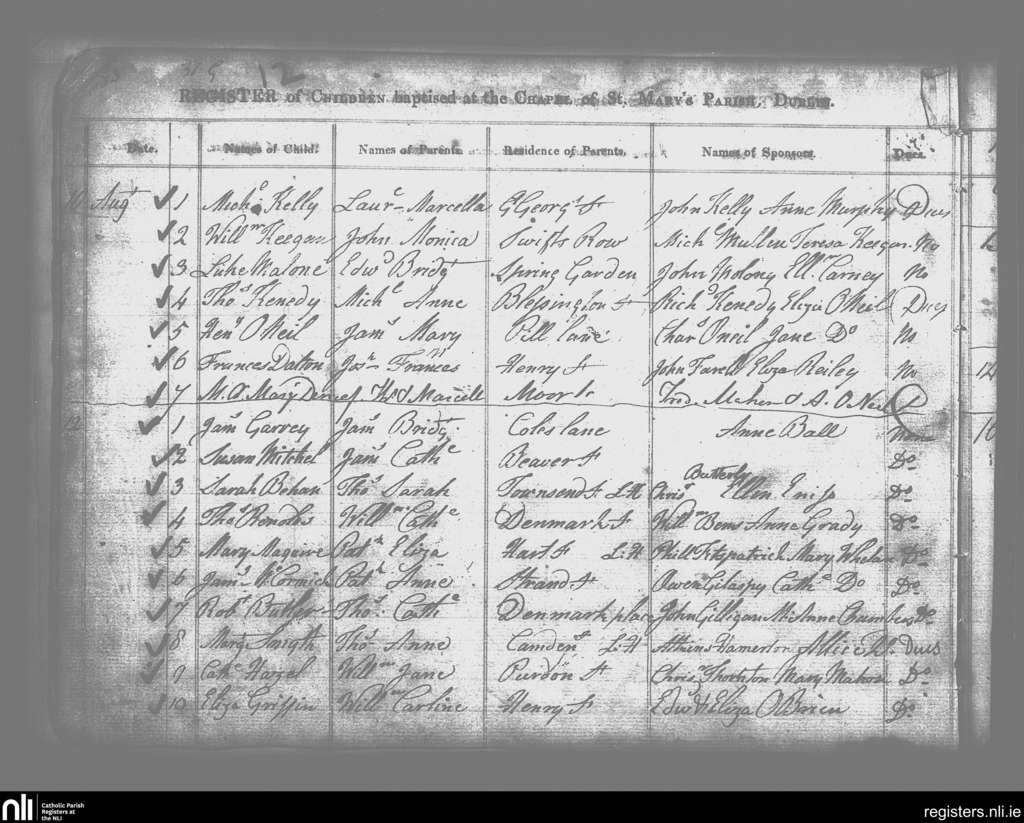 315 12
REGISTER of CHILDREN baptised at the CHAPEL of St. MARY'S PARISH, DUBLIN.
Date. Names of Child. Names of Parents. Residence of Parents. Names of Sponsors. Dues.
10 Augt 1 Michl Kelly Laurce Marcella Gt Georgs St John Kelly Anne Murphy Dues
2 Willm Keegan John Monica Swifts Row Michl Mullen Teresa Keegan No
3 Luke Malone Edwd Bridgt Spring Garden John Molony Elln Carney No
4 Thos Kenedy Michl Anne Blessington St Richd Kenedy Eliza ONeil Dues
5 Heny ONeil Jams Mary Pill lane Chars Oneil Jane Do No
6 Frances Dalton Josh Frances Henry St John Farell Eliza Reiley No
7 Mary of Thos Marcella Moor St Fredk Meher & A. ONeil D
12 1 Jams Garvey Jams Bridgt Coles lane Anne Ball None
2 Susan Mitchel Jams Cathe Beaver St Do
Butterly
3 Sarah Behan Thos Sarah Townsend St L:H Chrisr Ellen Do
4 Thos Willm Cathe Denmark St Willm Bems Anne Grady Do
5 Mary Maguire Patk Eliza Hart St L:H Phill Fitzpatrick Mary Whelan Do
6 Jams McCormick Patk Anne Strand St Owen Gilaspy Cathe Do Do
7 Robt Butler Thos Cathe Denmark place John Gilligan Anne Chambers Do
8 Margt Smyth Thos Anne Camden St L:H Atkins Hamerton Allice Do Dues
9 Cathe Hazel Willm Jane Purdon St Chrisr Thornton Mary Mahon Do
10 Eliza Griffin Willm Carline Henry St Edwd & Eliza OBrien Do
nli Catholic Parish
Registers at
the NLI
registers.nli.ie